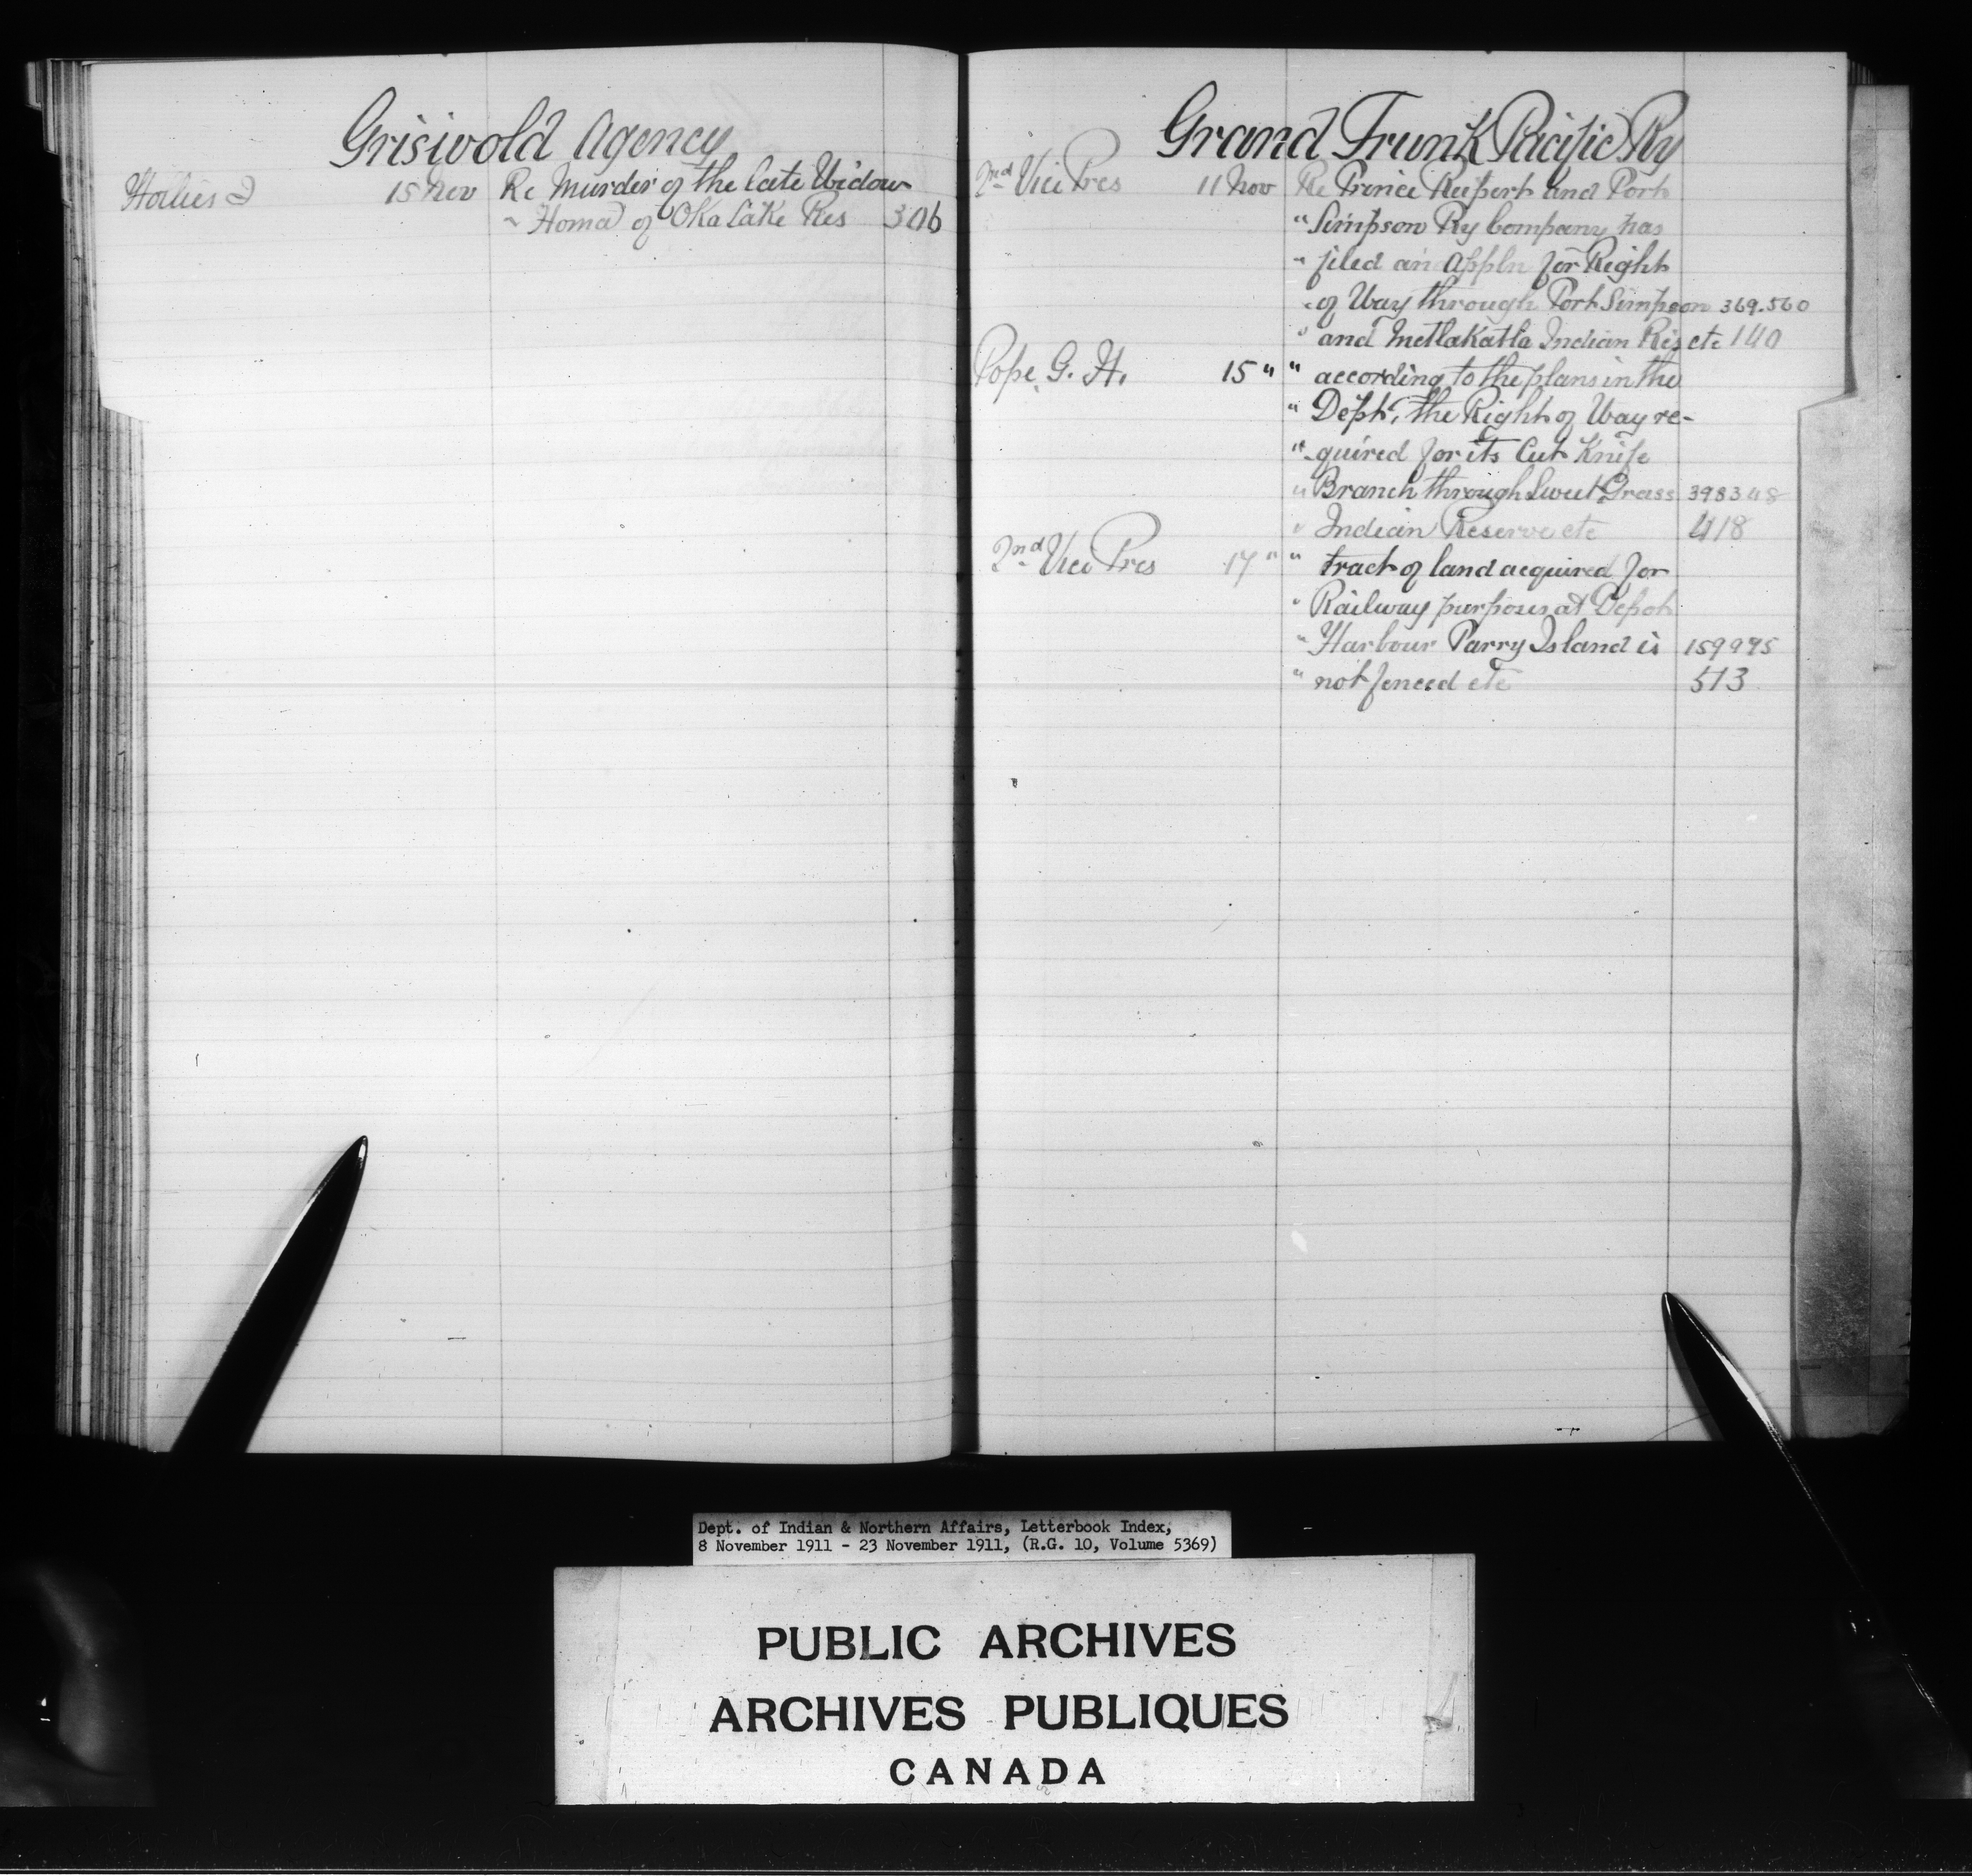 Griswold Agency
Hollies J 15 Nov Re Murder of the late Widow
" Homa of Oka Lake Res 306
Grand Trunk Pacific Ry
2nd Vice Pres 11 Nov Re Prince Rupert and Port
" Simpson Ry Company has
" filed an Appln for Right
" of Way through Port Simpson 369.560
" and Metlakatla Indian Res etc 140
Pope G. H. 15 " " according to the plans in the
" Dept, the Right of Way re-
" quired for its Cut Knife
" Branch through Sweet Grass 398348
" Indian Reserve etc 418
2nd Vice Pres 17 " " tract of land acquired for
" Railway purposes at Depot
" Harbour Parry Island is 159995
" not fenced etc 513
Dept. of Indian & Northern Affairs, Letterbook Index,
8 November 1911 - 23 November 1911, (R.G. 10, Volume 5369)
PUBLIC ARCHIVES
ARCHIVES PUBLIQUES
CANADA